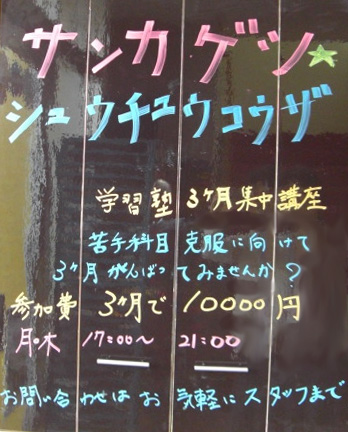 サンカゲツ☆
シュウチュウコウザ
学習塾 3ヶ月集中講座
苦手科目 克服に向けて
3ヶ月がんばってみませんか？
参加費 3ヶ月で 10000円
月・木 17:00〜 21:00
お問い合わせはお気軽にスタッフまで